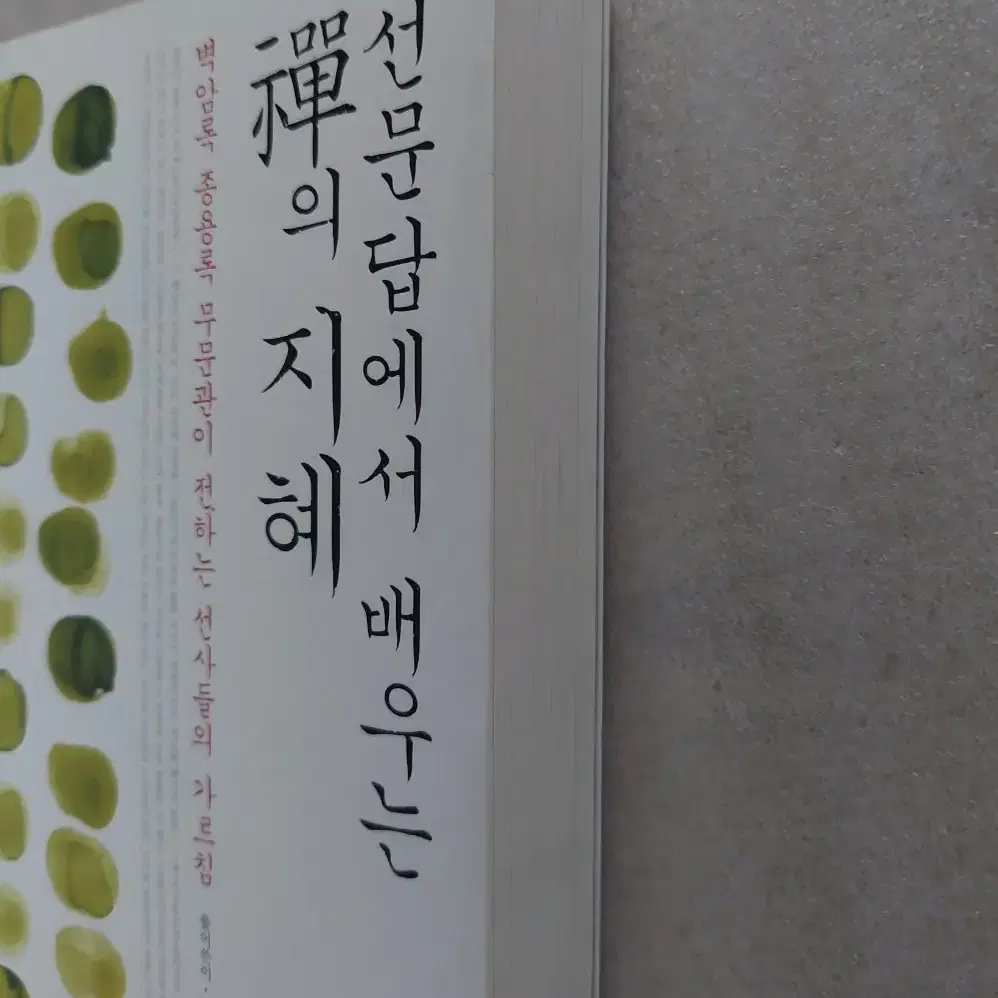 선문답에서 배우는
禪의 지혜
벽암록 종용록 무문관이 전하는 선사들의 가르침